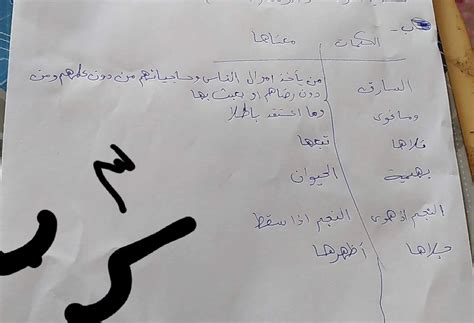 ب -
الكلمات معناها
السارق من يأخذ اموال الناس وحاجياتهم من دون علمهم ومن
دون رضاهم او يعبث بها
وما غوى وما اعتقد باطلا
تلاها تبعها
بهيمة الحيوان
النجم اذا هوى النجم اذا سقط
جلاها أظهرها